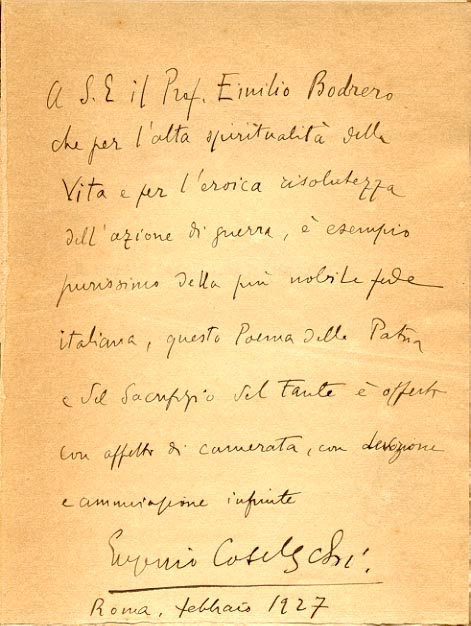 A S. E il Prof. Emilio Bodrero
che per l'alta spiritualità della
Vita e per l'eroica risolutezza
dell'azione di guerra, è esempio
purissimo della più nobile fede
italiana, questo Poema della Patria
e del Sacrifizio del Fante è offerto
con affetto di camerata, con devozione
e ammirazione infinite
Eugenio Coselschi.
Roma, febbraio 1927